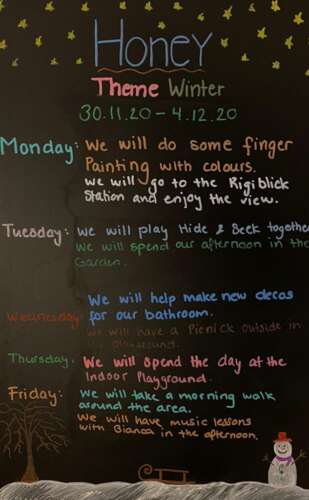 Honey
Theme Winter
30.11.20 - 4.12.20
Monday: We will do some finger
Painting with colours.
We will go to the Rigiblick
Station and enjoy the view.
Tuesday: We will play Hide & Seek together
We will spend our afternoon in the
Garden.
Wednesday: We will help make new decos
for our bathroom.
We will have a Picnick outside in
the playground.
Thursday: We will spend the day at the
Indoor Playground.
Friday: We will take a morning walk
around the area.
We will have music lessons
with Bianca in the afternoon.